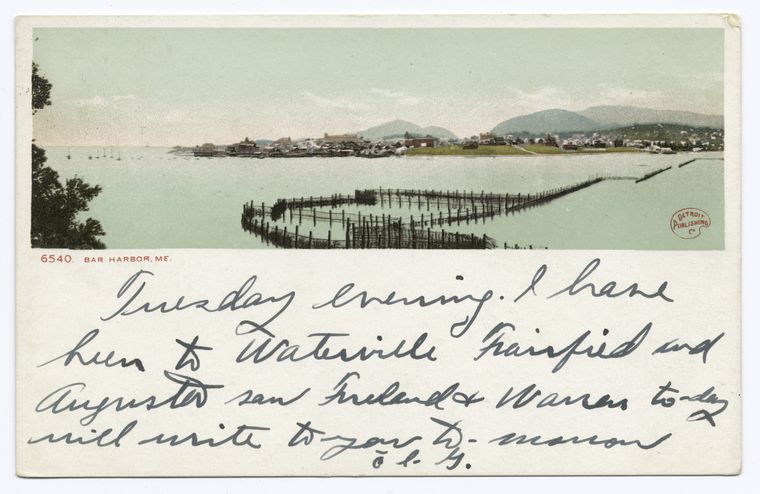 DETROIT
PUBLISHING
Co
6540. BAR HARBOR, ME.
Tuesday evening. I have
been to Waterville Fairfield and
Augusta saw Freeland & Warren to-day
will write to you to-morrow